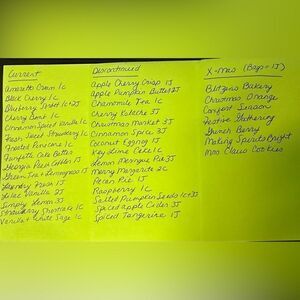 Current
Amaretto Cream 1C
Black Cherry 1C
Blueberry Sorbet 1C+2J
Cherry Bomb 1C
Cinnamon Sweet Vanilla 1C
Fresh Sweet Strawberry 1C
Frosted Pancake 1C
Funfetti Cake Batter
Georgia Peach Coffee 1J
Green Tea + Lemongrass 1J
Laundry Fresh 1J
Lilac Vanilla 2J
Simply Lemon 3J
Strawberry Shortcake 1C
Vanilla + White Sage 1C
Discontinued
Apple Cherry Crisp 1J
Apple Pumpkin Butter 2J
Chamomile Tea 1C
Cherry Kolache 3J
Christmas Market 3J
Cinnamon Spice 3J
Coconut Eggnog 1J
Key Lime Cake 1C
Lemon Meringue Pie 3J
Merry Margarita 2C
Pecan Pie 1J
Raspberry 1C
Salted Pumpkin Seeds 1C+3J
Spiced Apple Cider 3J
Spiced Tangerine 1J
X-Mas (Bxp = 1J)
Blitzens Bakery
Christmas Orange
Comfort Season
Festive Gathering
Grinch Berry
Making Spirits Bright
Mrs Claus Cookies